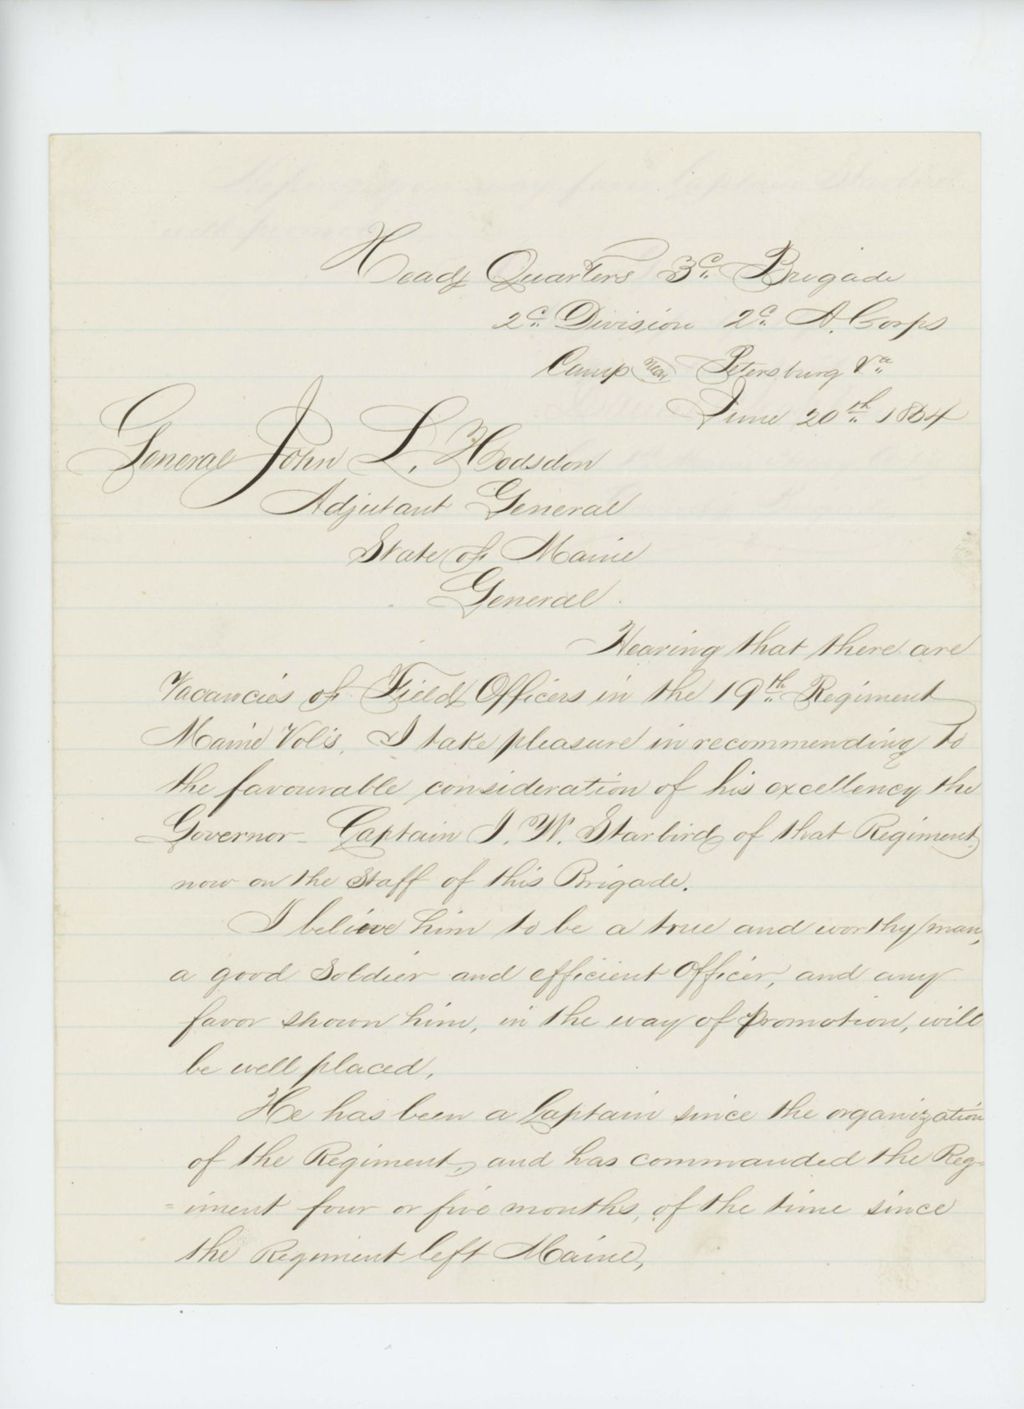 Head Quarters 3d Brigade
2d Division 2d A. Corps
Camp near Petersburg Va
June 20th 1864
General John L. Hodsdon
Adjutant General
State of Maine
General.
Hearing that there are
Vacancies of Field Officers in the 19th Regiment
Maine Vol's, I take pleasure in recommending to
the favourable consideration of his excellency the
Governor - Captain I. W. Starbird of that Regiment,
now on the Staff of this Brigade.
I believe him to be a true and worthy man,
a good Soldier and efficient Officer, and any
favor shown him, in the way of promotion, will
be well placed.
He has been a Captain since the organization
of the Regiment, and has commanded the Reg-
=iment four or five months, of the time since
the Regiment left Maine,